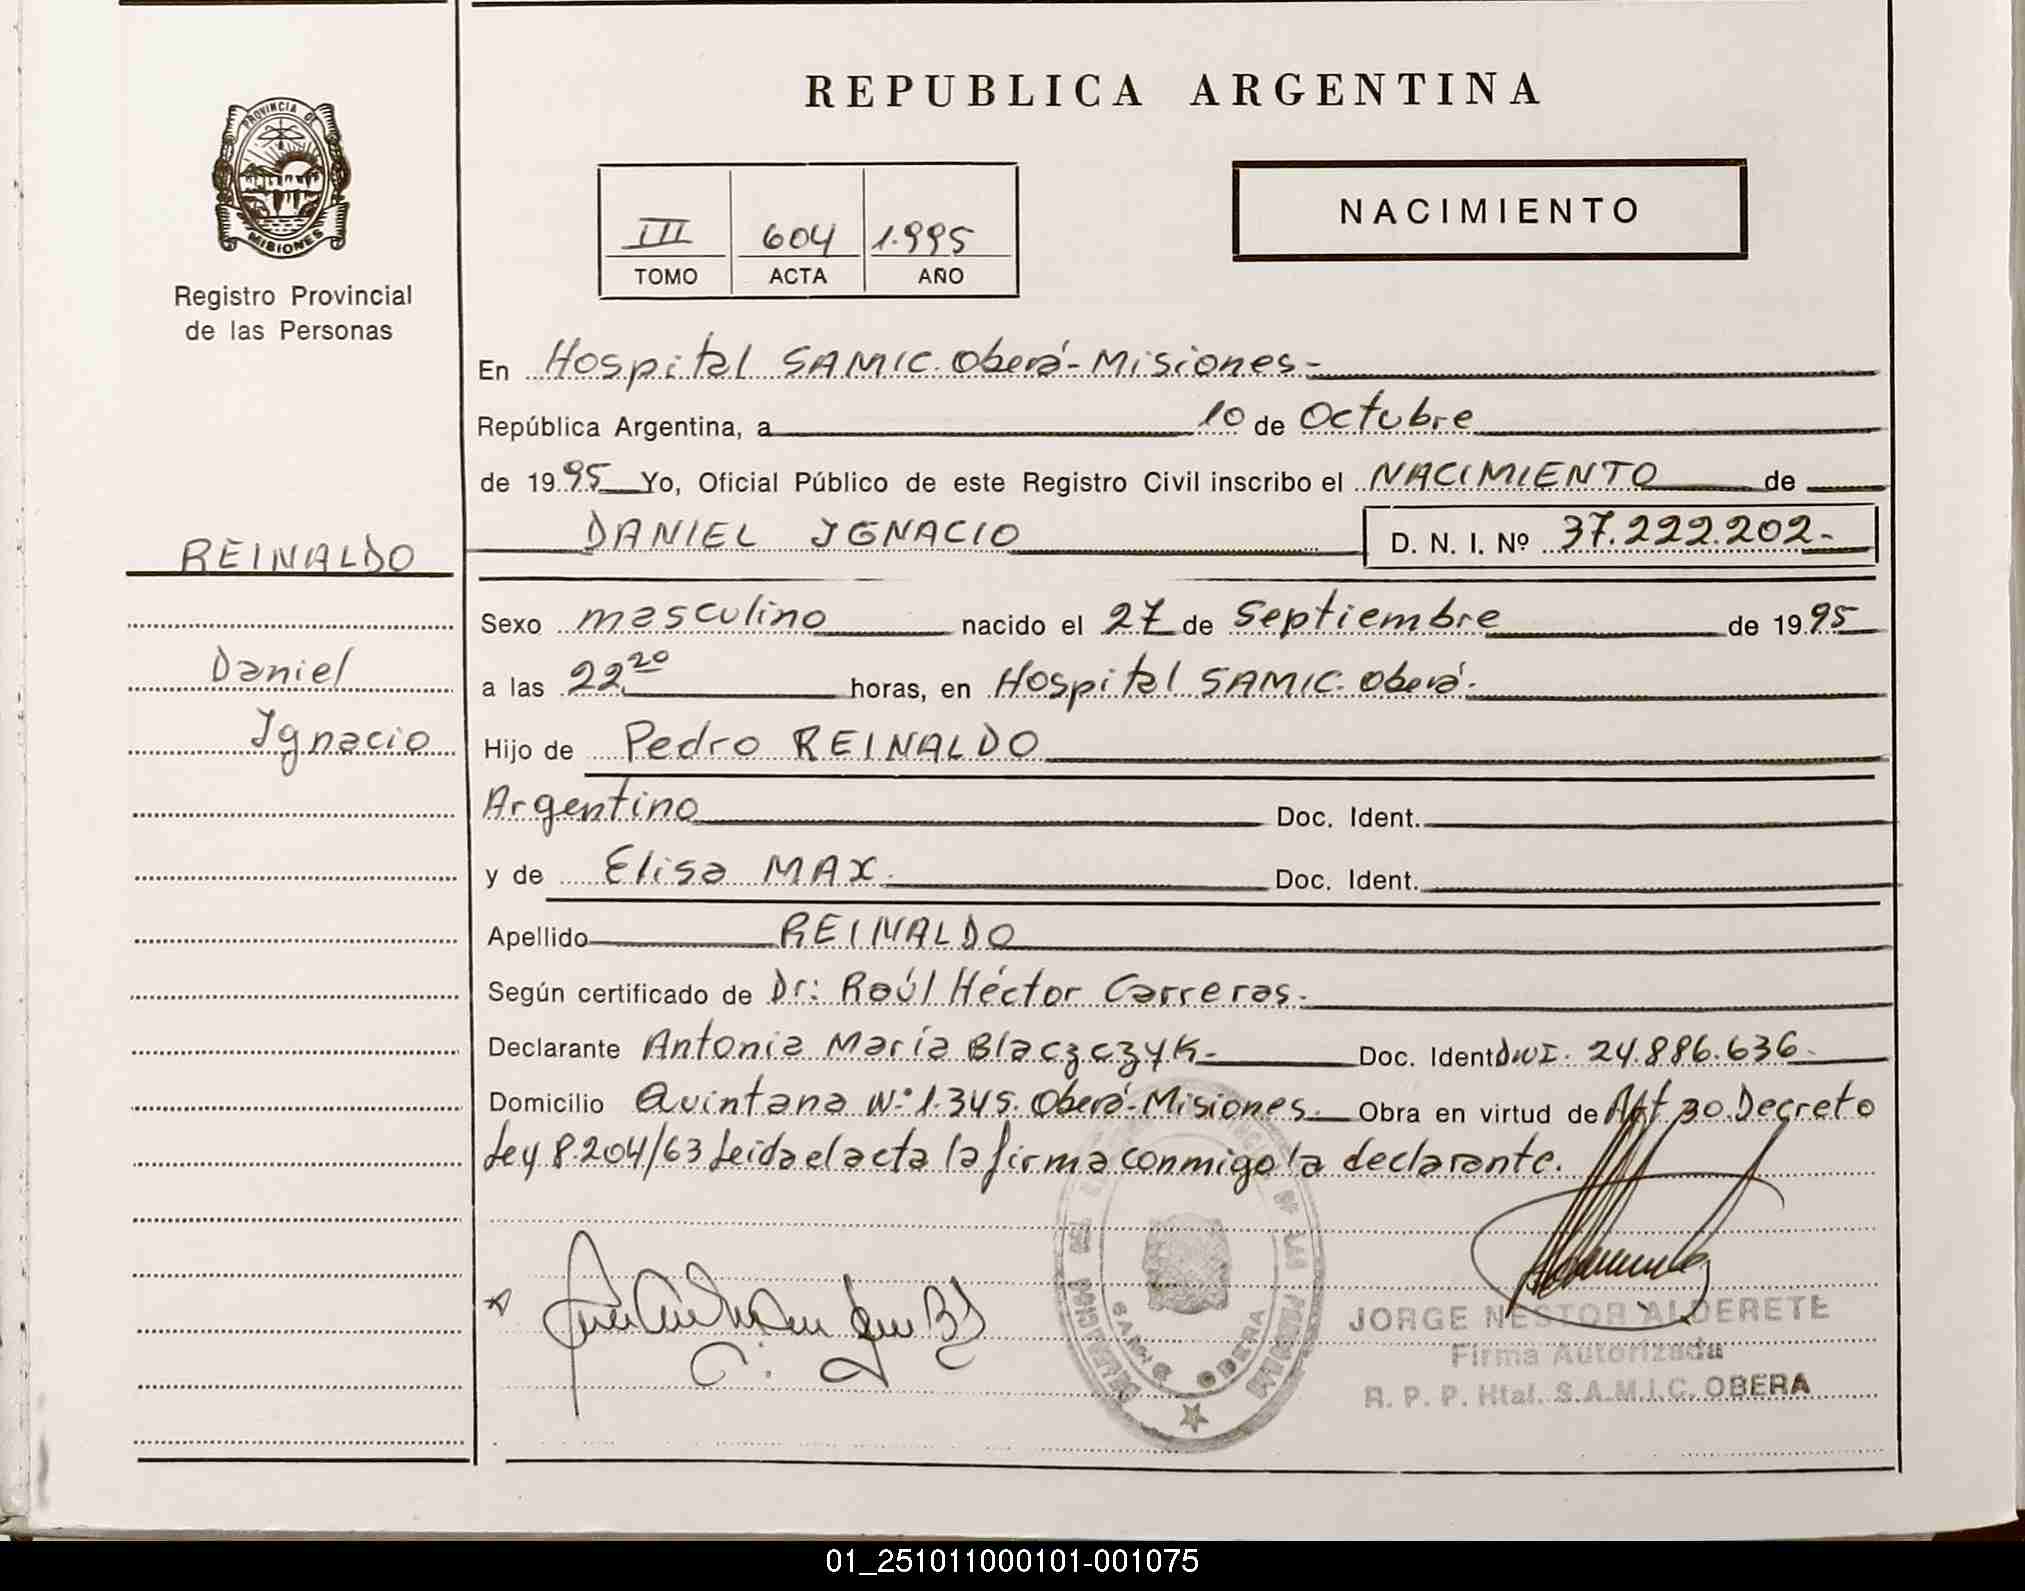 REPUBLICA ARGENTINA
PROVINCIA DE
MISIONES
Registro Provincial
de las Personas
III 604 1.995
TOMO ACTA AÑO
NACIMIENTO
En Hospital SAMIC. Oberá-Misiones-
República Argentina, a 10 de Octubre
de 1995 Yo, Oficial Público de este Registro Civil inscribo el NACIMIENTO de
DANIEL IGNACIO D. N. I. Nº 37.222.202.-
REINALDO
Daniel
Ignacio
Sexo masculino nacido el 27 de Septiembre de 1995
a las 22.20 horas, en Hospital SAMIC. Oberá.
Hijo de Pedro REINALDO
Argentino Doc. Ident.
y de Elisa MAX. Doc. Ident.
Apellido REINALDO
Según certificado de Dr: Raúl Héctor Carreras.
Declarante Antonia María Blaczczyk- Doc. Ident DNI. 24.886.636.
Domicilio Quintana N.º 1.345. Oberá-Misiones. Obra en virtud de Art 30. Decreto
Ley 8.204/63 Leida el acta la firma conmigo la declarante.
JORGE NESTOR ALDERETE
Firma Autorizada
R. P. P. Htal. S.A.M.I.C. OBERA
SAMIC OBERA
01_251011000101-001075